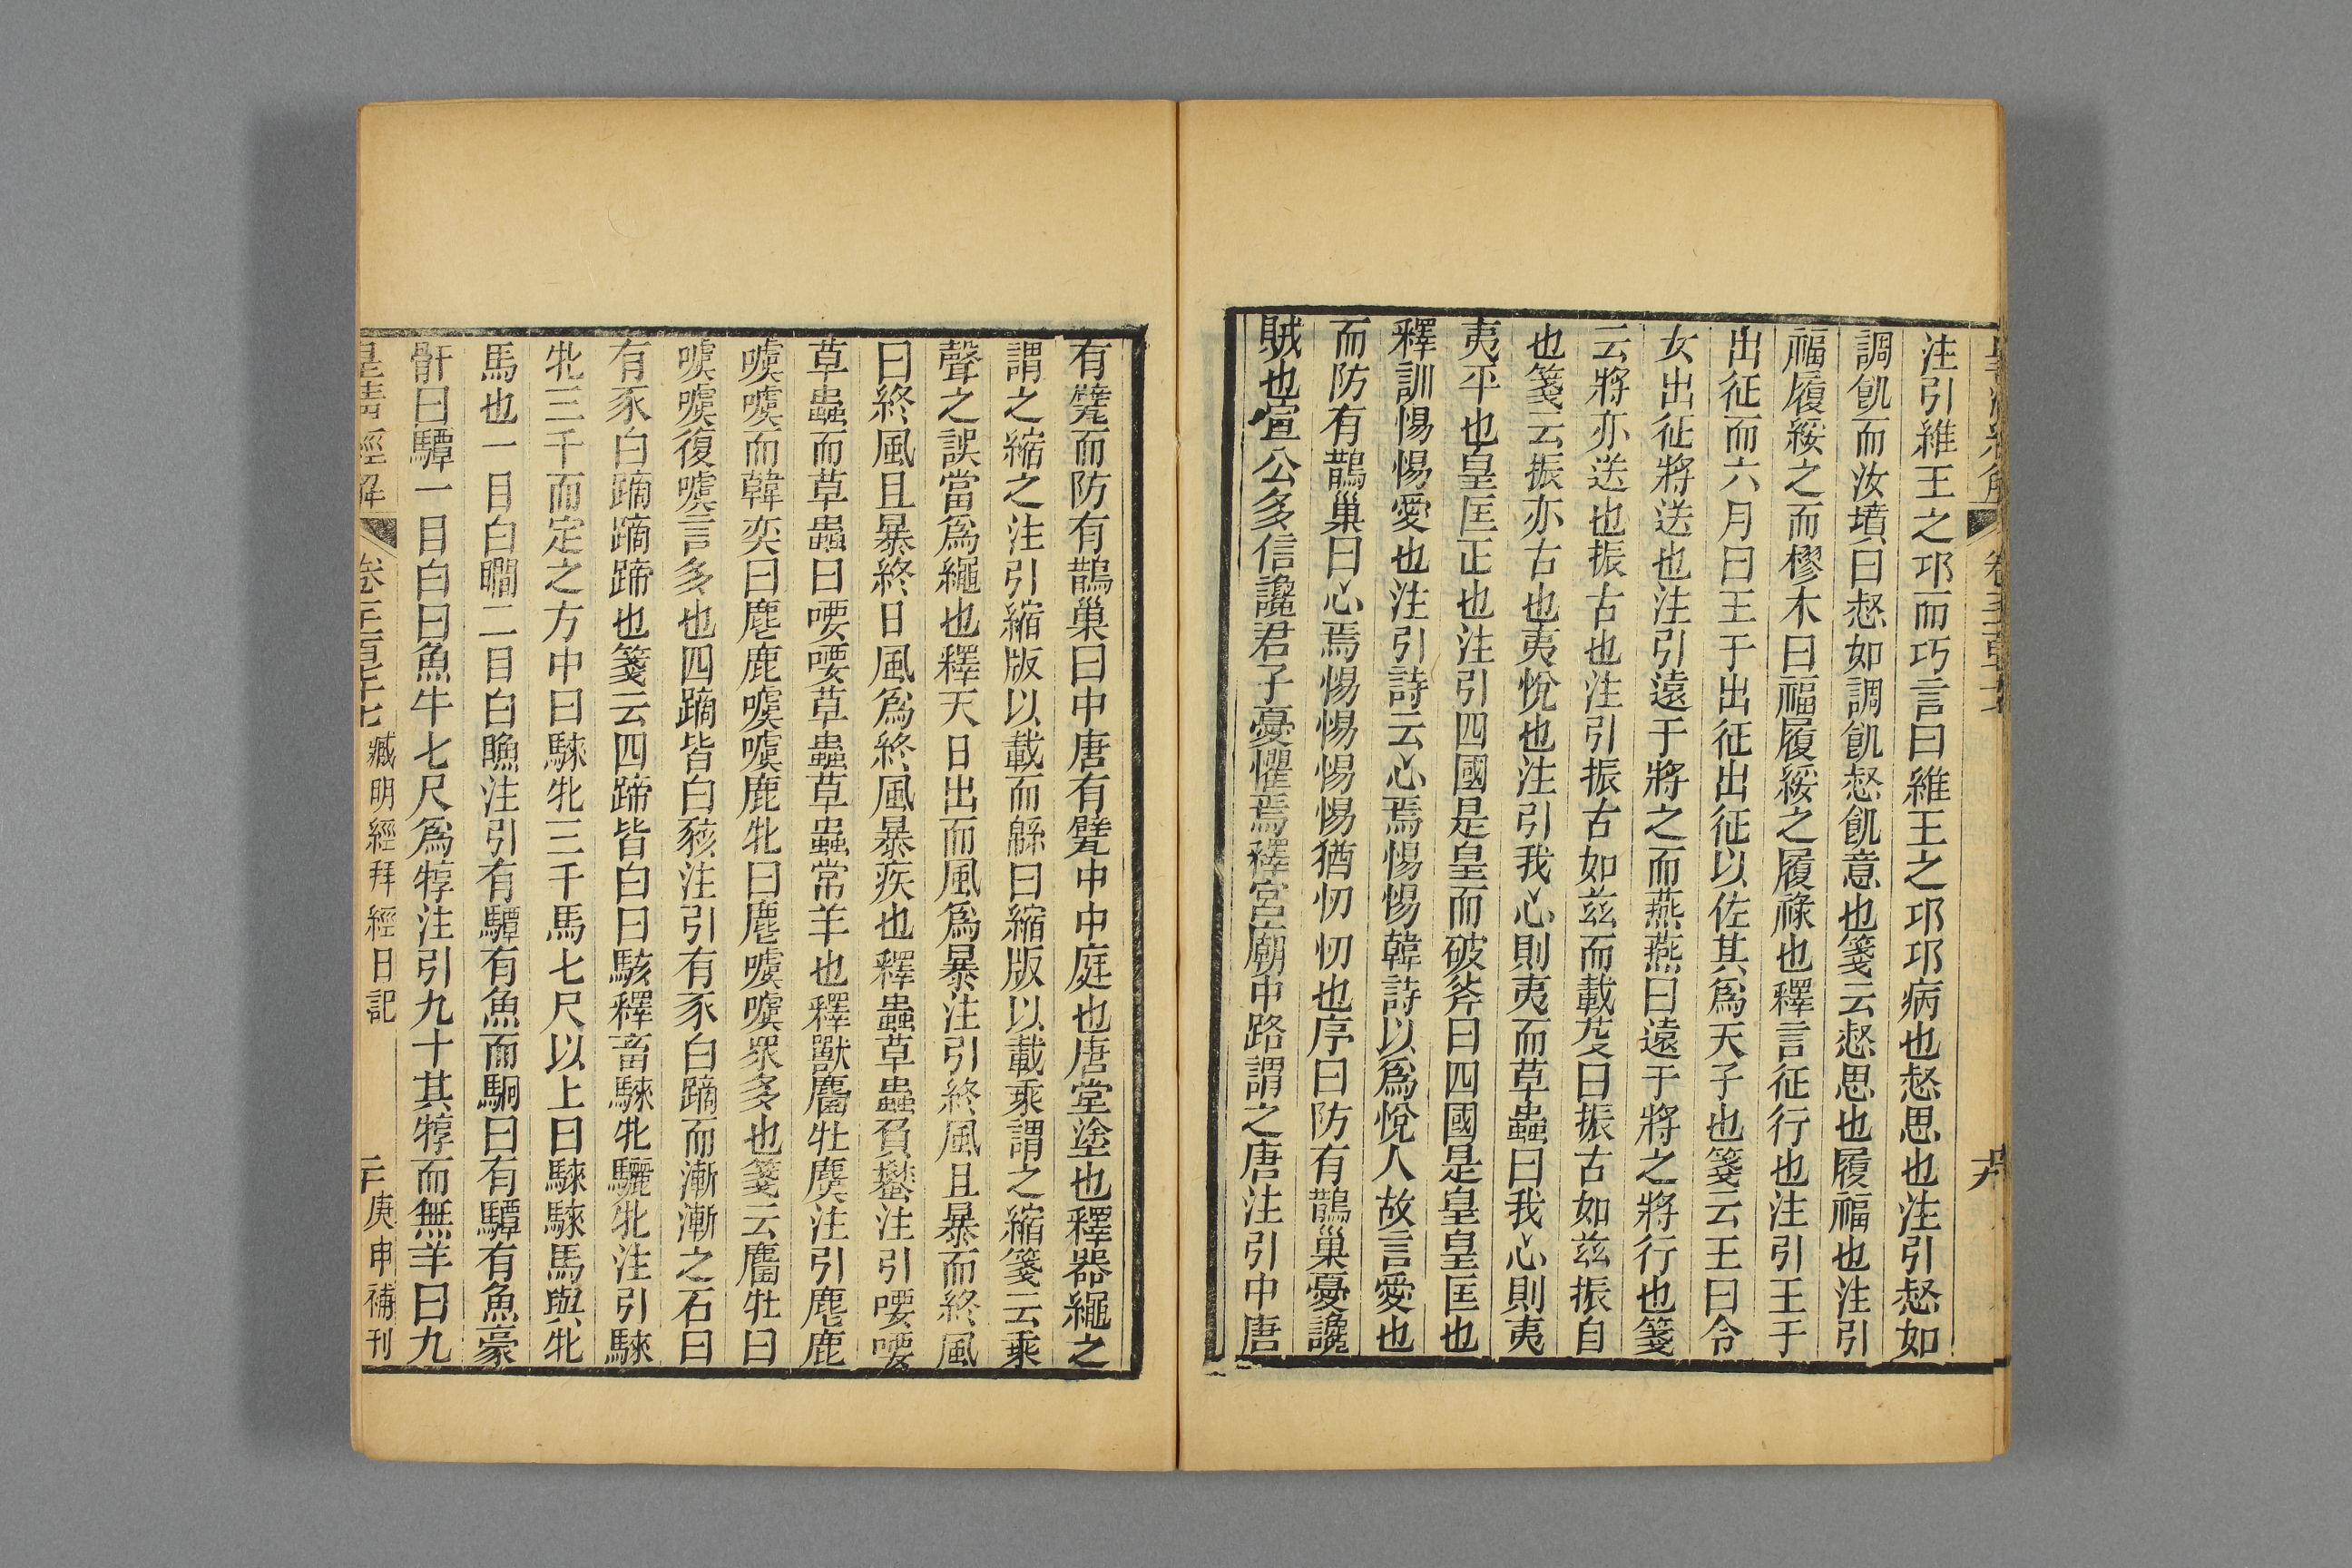 注引維王之邛而巧言曰維王之邛邛病也惄思也注引惄如
調飢而汝墳曰惄如調飢惄飢意也箋云惄思也履福也注引
福履綏之而樛木曰福履綏之履祿也釋言征行也注引王于
出征而六月曰王于出征出征以佐其爲天子也箋云王曰令
女出征將送也注引遠于將之而燕燕曰遠于將之將行也箋
云將亦送也振古也注引振古如茲而載芟曰振古如茲振自
也箋云振亦古也夷悅也注引我心則夷而草蟲曰我心則夷
夷平也皇匡正也注引四國是皇而破斧曰四國是皇皇匡也
釋訓惕惕愛也注引詩云心焉惕惕韓詩以爲悅人故言愛也
而防有鵲巢曰心焉惕惕惕惕猶忉忉也序曰防有鵲巢憂讒
賊也宣公多信讒君子憂懼焉釋宮廟中路謂之唐注引中唐
有甓而防有鵲巢曰中唐有甓中中庭也唐堂塗也釋器繩之
謂之縮之注引縮版以載而緜曰縮版以載乘謂之縮箋云乘
聲之誤當爲繩也釋天日出而風爲暴注引終風且暴而終風
曰終風且暴終日風爲終風暴疾也釋蟲草蟲負蠜注引喓喓
草蟲而草蟲曰喓喓草蟲草蟲常羊也釋獸麕牡麌注引麀鹿
噳噳而韓奕曰麀鹿噳噳鹿牝曰麀噳噳衆多也箋云麕牡曰
噳噳復噳言多也四蹢皆白豥注引有豕白蹢而漸漸之石曰
有豕白蹢蹢蹄也箋云四蹄皆白曰駭釋畜騋牝驪牝注引騋
牝三千而定之方中曰騋牝三千馬七尺以上曰騋騋馬與牝
馬也一目白瞯二目白瞧注引有驔有魚而駉曰有驔有魚豪
骭曰驔一目白曰魚牛七尺爲犉注引九十其犉而無羊曰九
皇淸經解 卷 臧明經拜經日記 庚申補刊